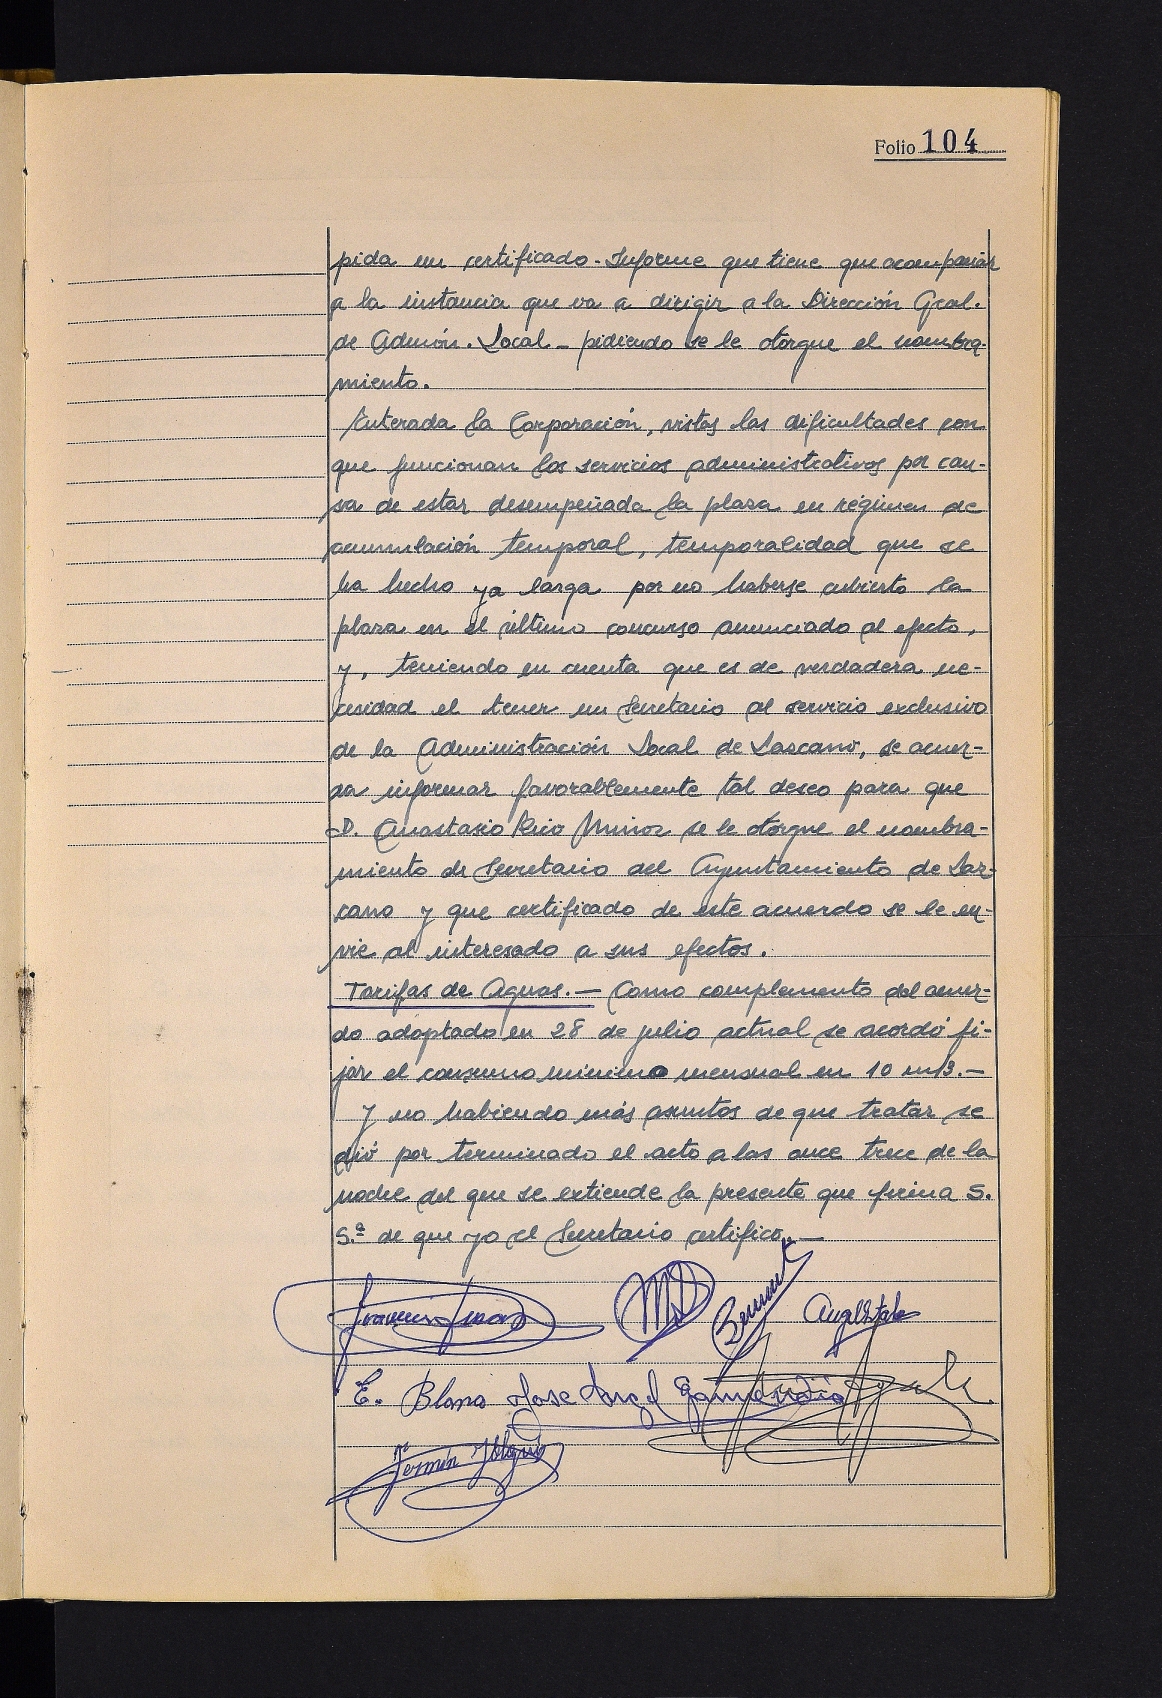 Folio 104
pida un certificado-Informe que tiene que acompañar
a la instancia que va a dirigir a la Dirección Gral.
de Admón. Local - pidiendo se le otorgue el nombra-
miento.
Enterada la Corporación, vistas las dificultades con
que funcionan los servicios administrativos por cau-
sa de estar desempeñada la plaza en régimen de
acumulación temporal, temporalidad que se
ha hecho ya larga por no haberse cubierto la
plaza en el último concurso anunciado al efecto,
y, teniendo en cuenta que es de verdadera ne-
cesidad el tener un Secretario al servicio exclusivo
de la Administración Local de Lazcano, se acuer-
da informar favorablemente tal deseo para que
D. Anastasio Rico Muñoz se le otorgue el nombra-
miento de Secretario del Ayuntamiento de Laz-
cano y que certificado de este acuerdo se le en-
vie al interesado a sus efectos.
Tarifas de Aguas.- Como complemento del acuer-
do adoptado en 28 de julio actual se acordó fi-
jar el consumo mínimo mensual en 10 m/3.-
Y no habiendo más asuntos de que tratar se
dió por terminado el acto a las once trece de la
noche del que se extiende la presente que firma S.
S.ª de que yo el Secretario certifico.-
E. Blano Jose Angel Garmendia
Fermin